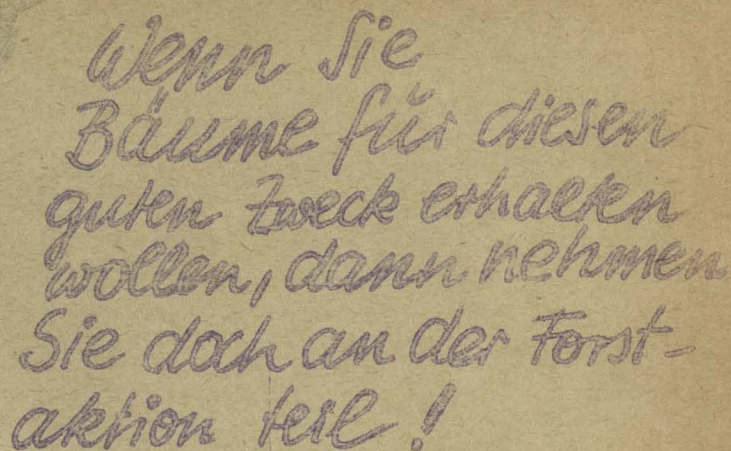 Wenn Sie
Bäume für diesen
guten Zweck erhalten
wollen, dann nehmen
Sie doch an der Forst-
aktion teil!